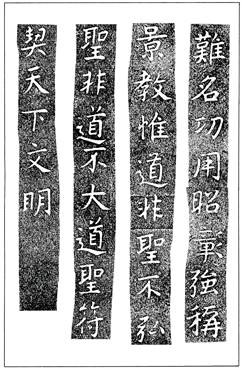 難名功用昭彰強稱
景教惟道非聖不弘
聖非道不大道聖符
契天下文明